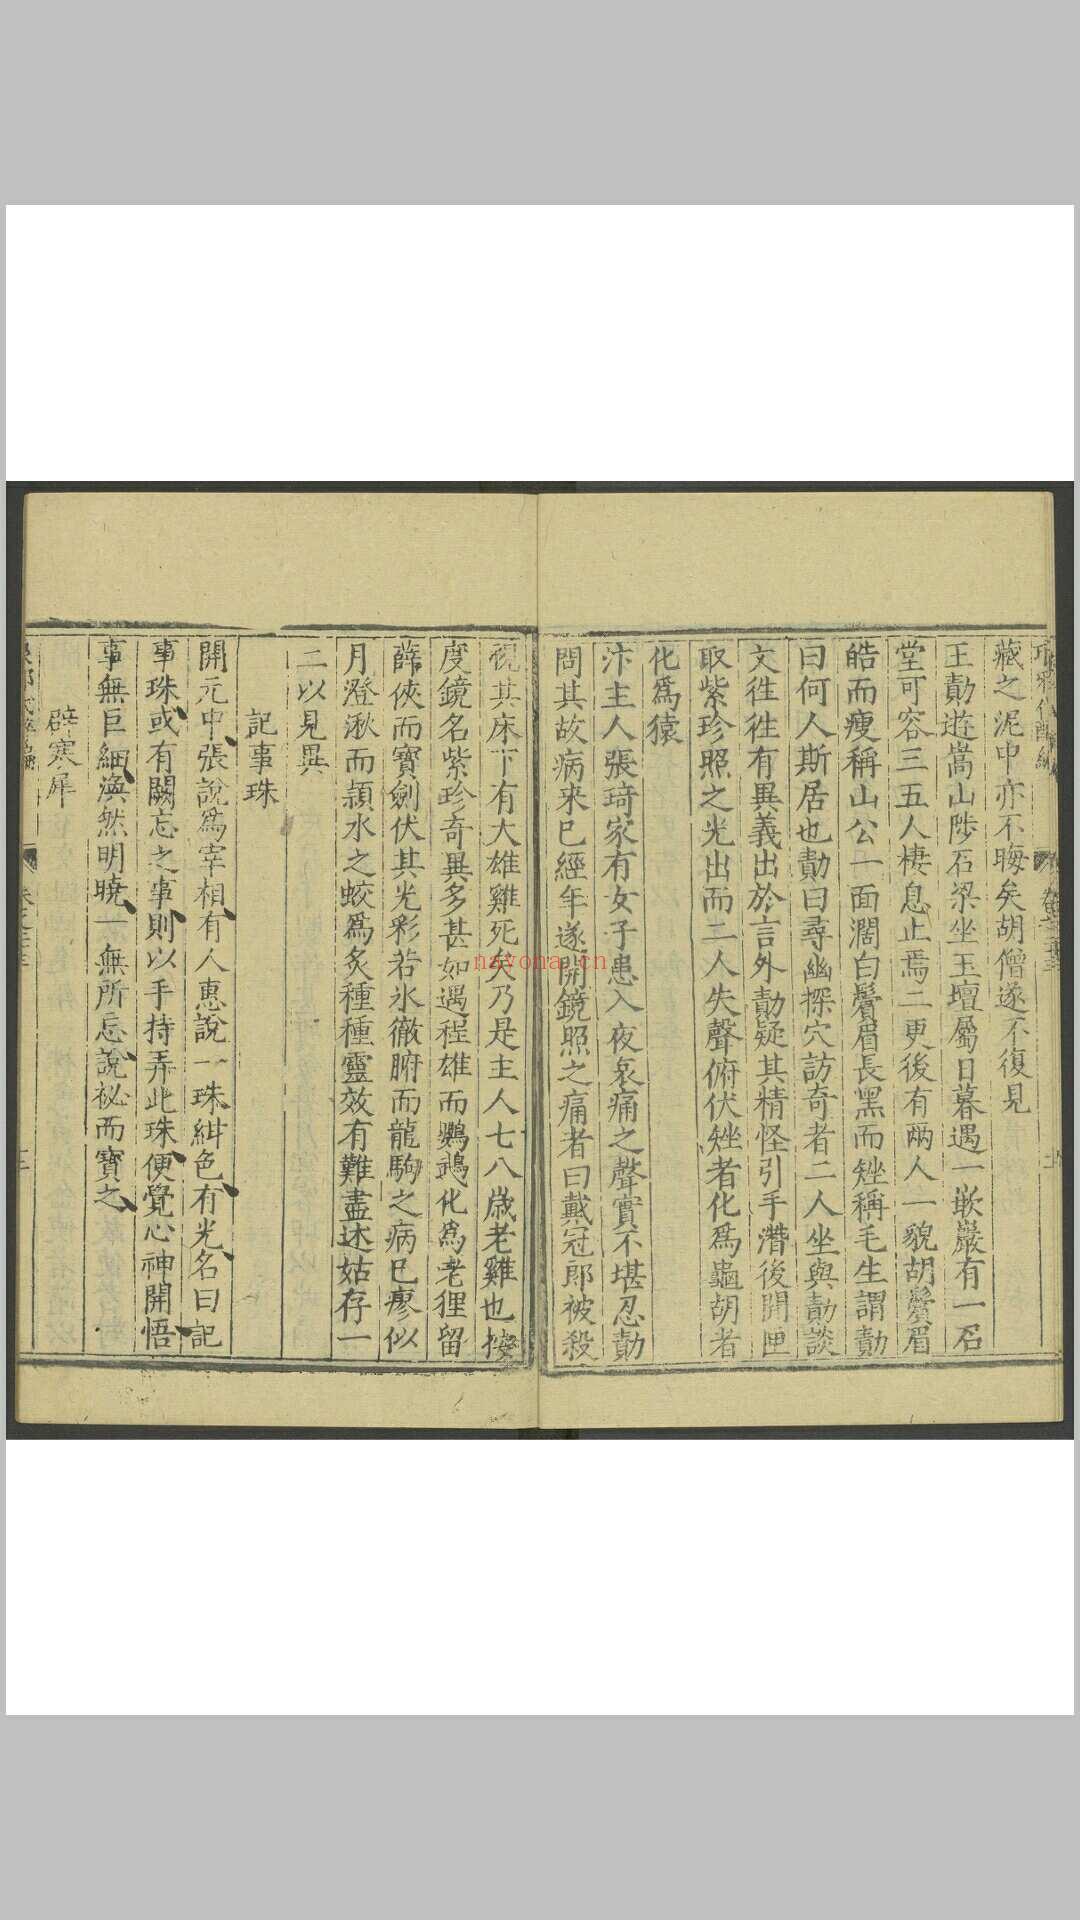 藏之泥中亦不晦矣胡僧遂不復見
王勣遊嵩山陟石梁坐玉壇屬日暮遇一嵌巖有一石
堂可容三五人棲息止焉二更後有兩人一貌胡鬢眉
皓而瘦稱山公一面濶白鬢眉長黑而矬稱毛生謂勣
曰何人斯居也勣曰尋幽探穴訪奇者二人坐與勣談
文徃徃有異義出於言外勣疑其精怪引手潛後開匣
取紫珍照之光出而二人失聲俯伏矬者化爲龜胡者
化爲猿
汴主人張琦家有女子患入夜哀痛之聲實不堪忍勣
問其故病来已經年遂開鏡照之痛者曰戴冠郎被殺
視其床下有大雄雞死矣乃是主人七八歲老雞也按
度鏡名紫珍奇異多甚如遇程雄而鸚鵡化爲老狸留
薛俠而寶劍伏其光彩若氷徹腑而龍駒之病已廖似
月澄湫而頴水之蛟爲炙種種靈效有難盡述姑存一
二以見異
記事珠
開元中張說爲宰相有人惠說一珠紺色有光名曰記
事珠或有闕忘之事則以手持弄此珠便覺心神開悟
事無巨細渙然明曉一無所忘說祕而寶之
辟寒犀
nayona.cn